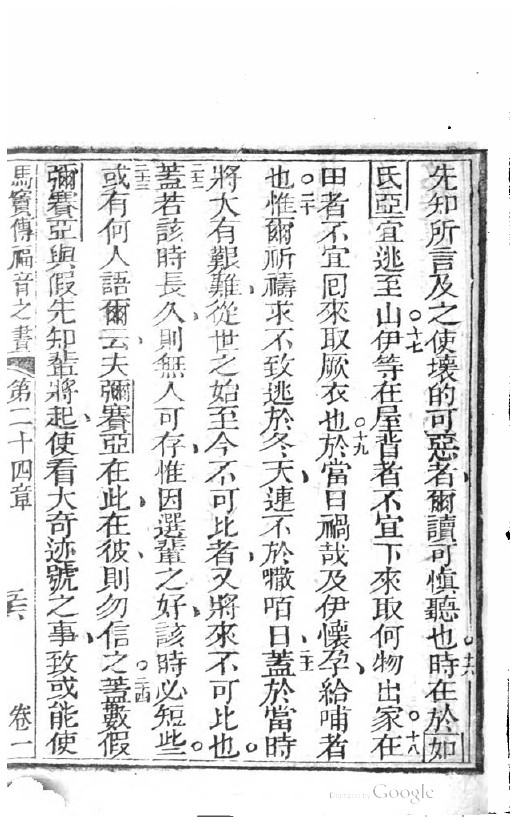 先知所言及之使壞的可惡者爾讀可慎聽也時在於如
十六
十七
氏亞宜逃至山伊等在屋背者不宜下來取何物出家在
十八
田者不宜回來取厥衣也於當日禍哉及伊懷孕給哺者
十九
也惟爾祈禱求不致逃於冬天連不於𠻳咟日蓋於當時
二十
二十一
將大有艱難從世之始至今不可比者又將來不可比也
二十二
蓋若該時長久則無人可存惟因選輩之好該時必短些
二十三
或有何人語爾云夫彌賽亞在此在彼則勿信之蓋數假
二十四
彌賽亞與假先知輩將起使看大奇迹號之事致或能使
馬竇傳福音之書 第二十四章 卷一
Digitized by Google